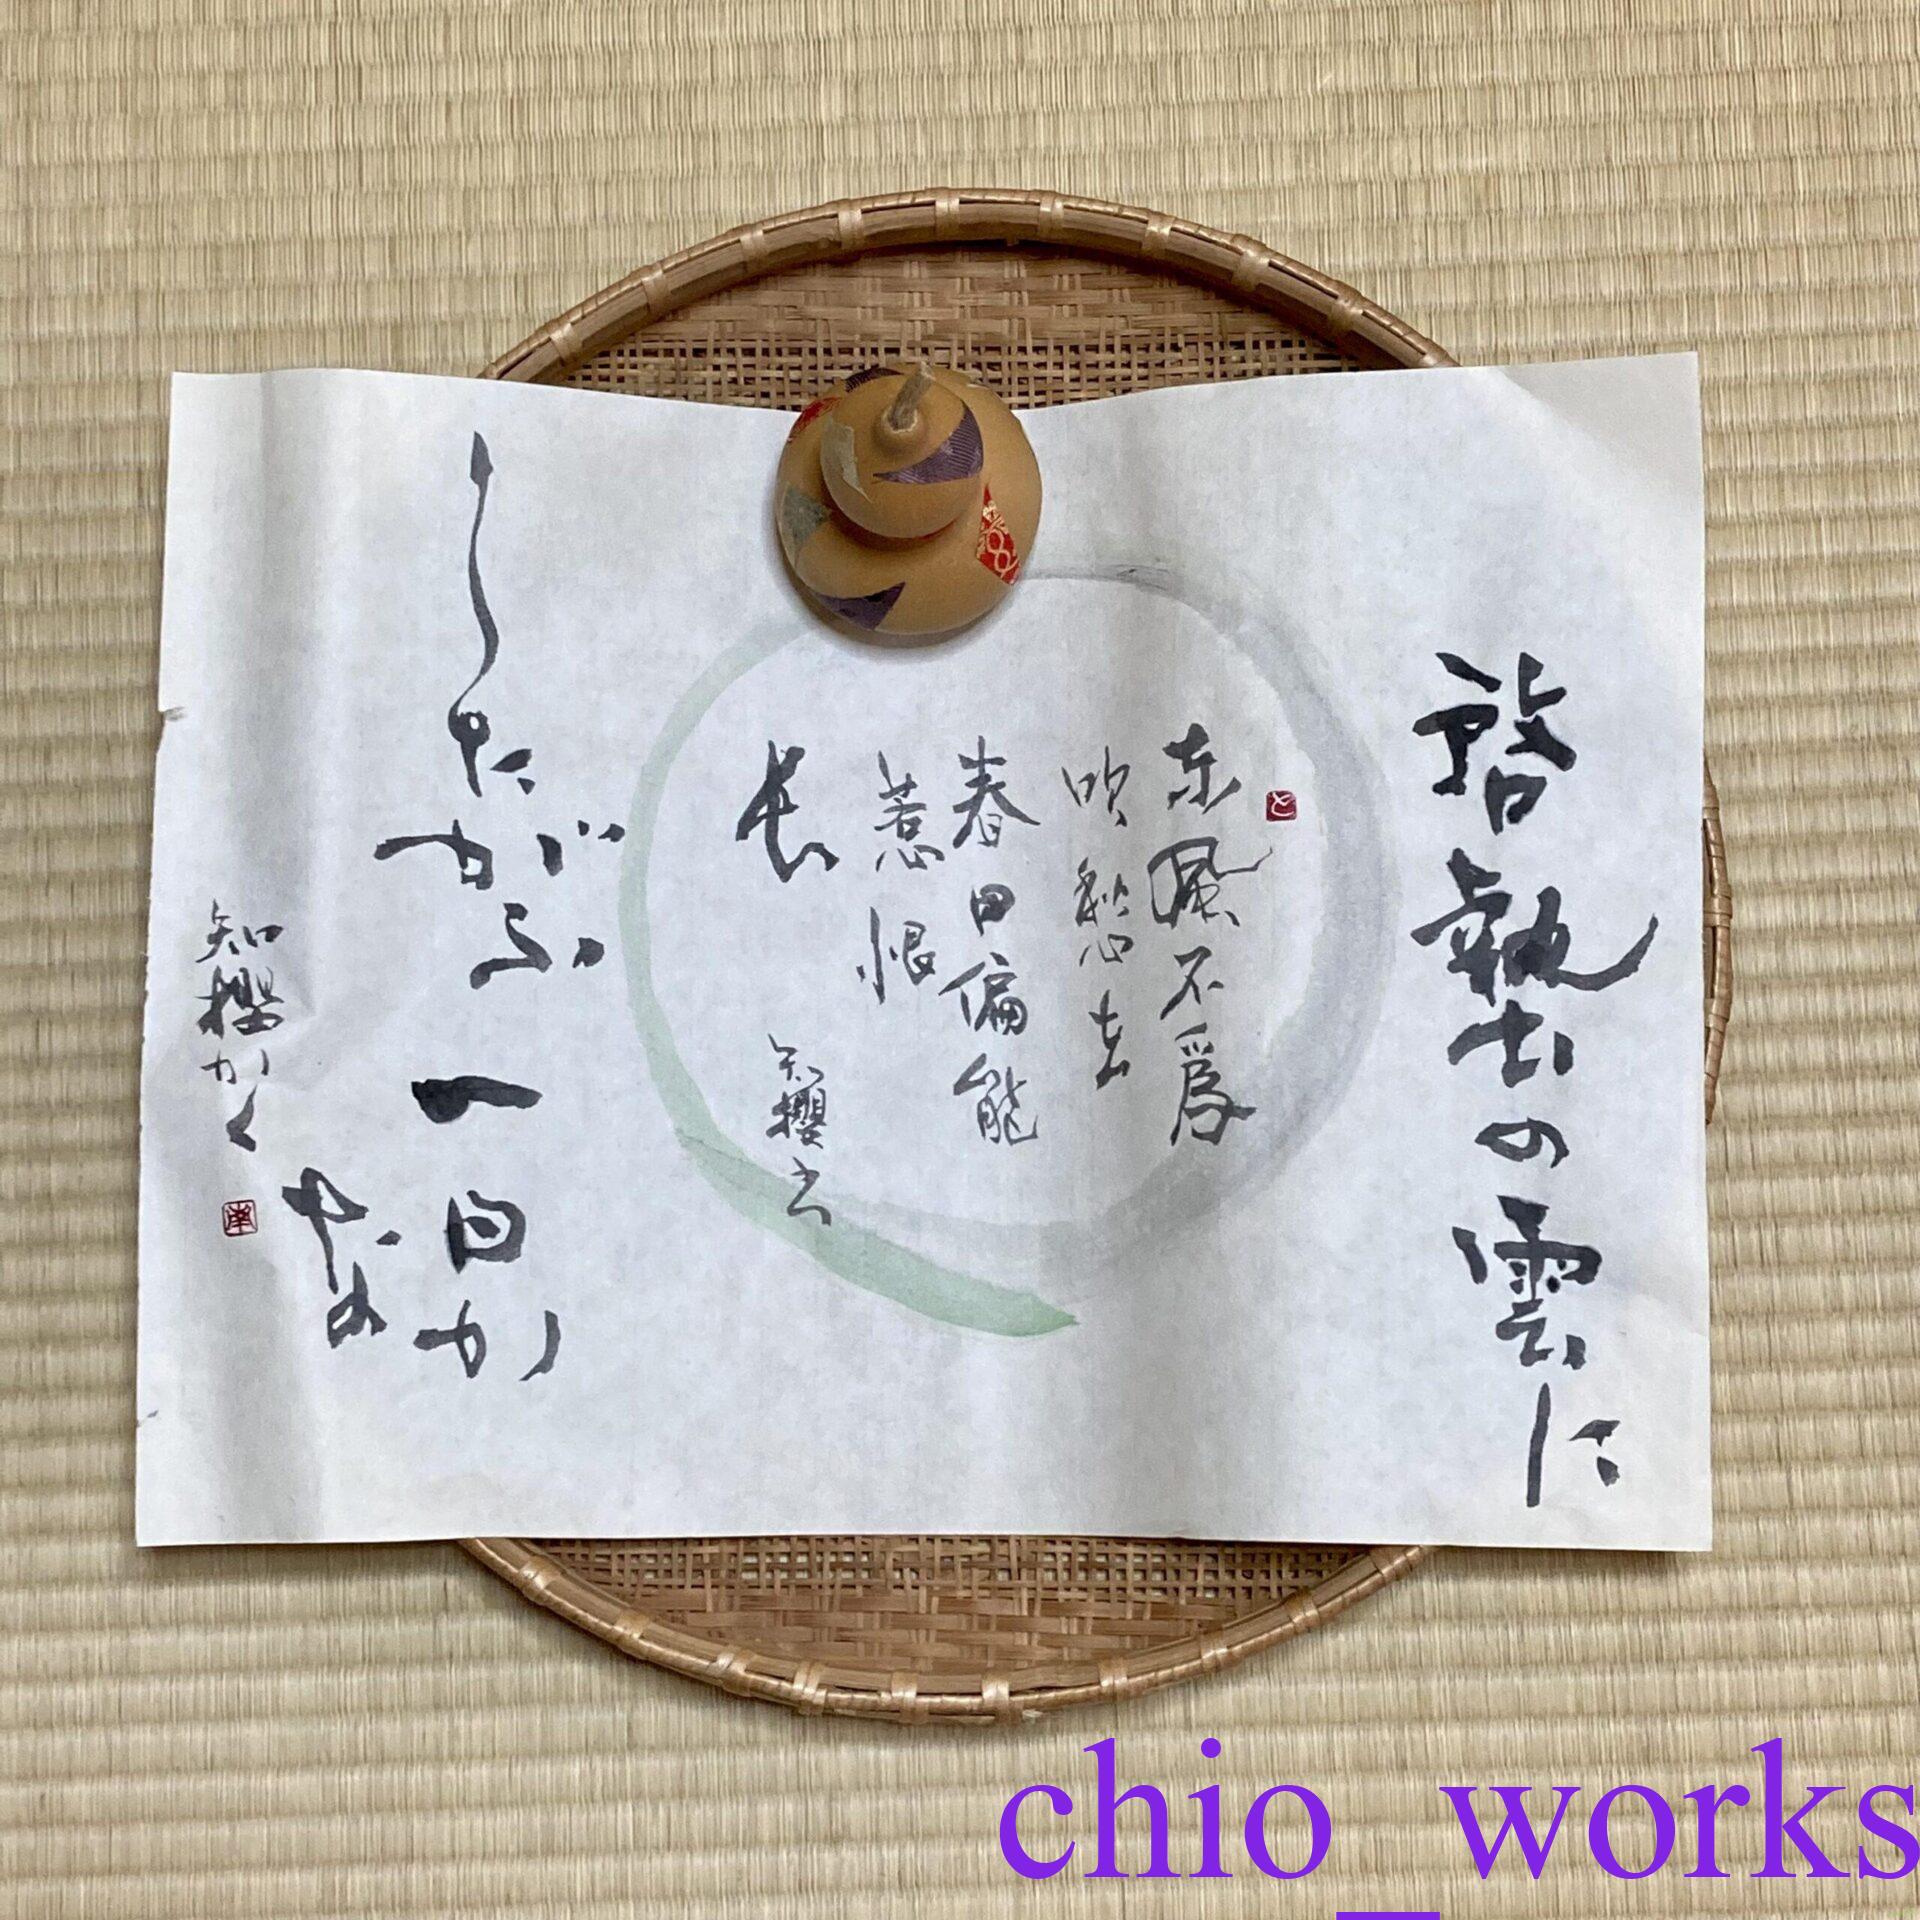 啓蟄の雲に
したがふ
一日か
な
知櫻かく
東風不為
吹愁去
春日偏能
惹恨
長
知櫻書
chio_works